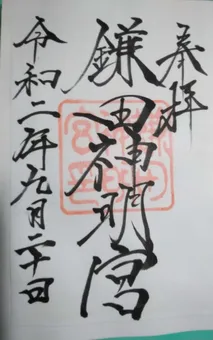 奉拝
鎌田神明宮
令和二年九月二十日